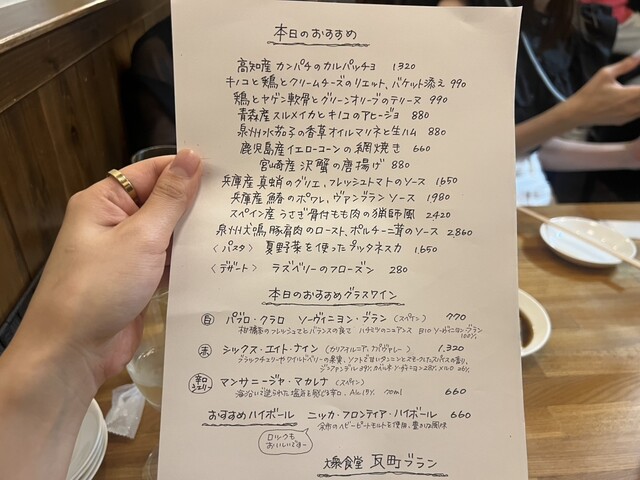 本日のおすすめ
高知産 カンパチのカルパッチョ 1320
キノコと鶏とクリームチーズのリエット、バケット添え 990
鶏とヤゲン軟骨とグリーンオリーブのテリーヌ 990
青森産 スルメイカとキノコのアヒージョ 880
泉州水茄子の香草オイルマリネと生ハム 880
鹿児島産イエローコーンの網焼き 660
宮崎産 沢蟹の唐揚げ 880
兵庫産 真蛸のグリエ、フレッシュトマトのソース 1650
兵庫産 鱧のポワレ、ヴァンブランソース 1980
スペイン産 うさぎ骨付もも肉の猟師風 2420
泉州犬鳴豚肩肉のロースト、ポルチーニ茸のソース 2,860
〈パスタ〉 夏野菜を使ったプッタネスカ 1,650
〈デザート〉 ラズベリーのフローズン 280
本日のおすすめグラスワイン
白 パブロ・クラロ ソーヴィニヨン・ブラン (スペイン) 770
柑橘系のフレッシュさとバランスの良さ ハチミツのニュアンス BIO ソーヴィニヨンブラン 100%
赤 シックス・エイト・ナイン (カリフォルニア、ナパヴァレー) 1,320
ブラックチェリーやワイルドベリーの果実、ソフトで甘いタンニンとスモークしたスパイスの香り、
辛口シェリー マンサニージャ・マカレナ (スペイン) 660
おすすめハイボール ニッカ・フロンティア・ハイボール 660
余市のヘビーピートモルトを使用、豊かな風味
ロックもおいしいですー
大衆食堂 瓦町ブラン